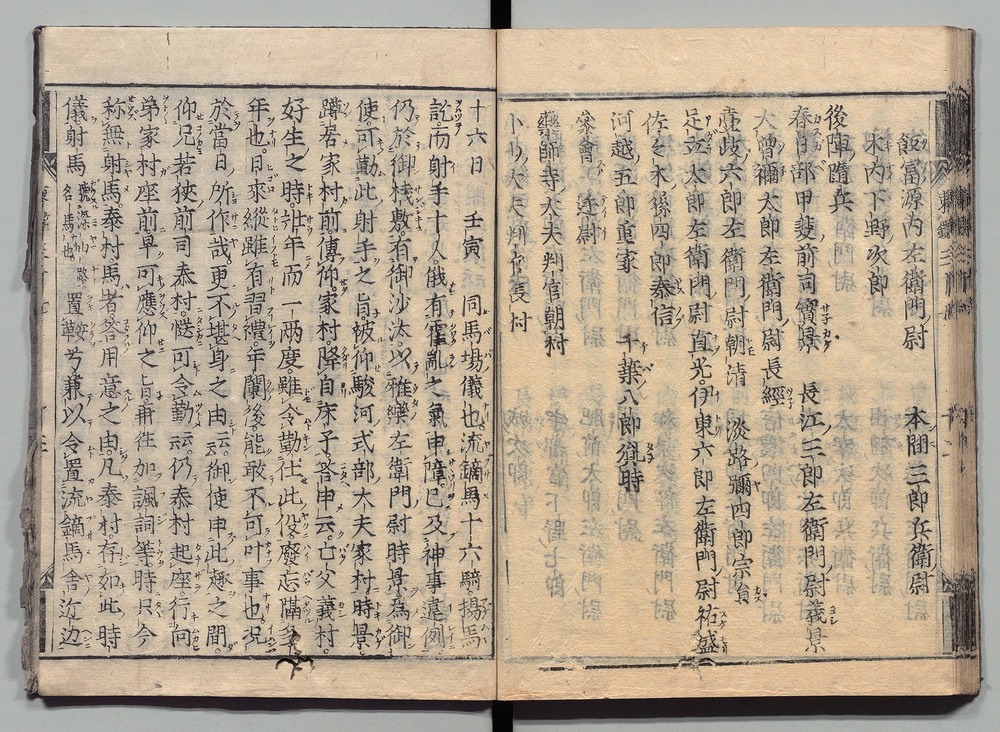 飯富源内左衛門尉　本間三郎兵衛尉
木内下野次郎
後陣随兵
春日部甲斐前司實景　長江三郎左衛門尉義景
大曽禰太郎左衛門尉長經
壹岐六郎左衛門尉朝清　淡路彌四郎宗員
足立太郎左衛門尉直光　伊東六郎左衛門尉祐盛
佐々木孫四郎泰信
河越五郎重家　千葉八郎胤時
參會廷尉
藥師寺大夫判官朝村
小山大夫判官長村
十六日　壬寅　同馬場儀也流鏑馬十六騎揚馬
訖而射手十人俄有霍亂之氣申障已及神事違例
仍於御棧敷有御沙汰以雅樂左衛門尉時景為御
使可勤此射手之旨被仰駿河式部大夫家村時景
蹲居家村前傳仰家村降自床子答申云亡父義村
好生之時壯年而一兩度雖令勤仕此役廢忘滿多
年也日來縱雖有習禮年闌後能敢不可叶事也況
於當日所作哉更不堪身之由云云御使申此趣之間
仰兄若狹前司泰村慥可令勤云云仍泰村起座行向
弟家村座前早可應仰之旨再往加諷詞等時只今
称無射馬泰村馬者答用意之由凡泰村存如此時
儀射馬 號深山路名馬也 置鞍兮兼以令置流鏑馬舎近边